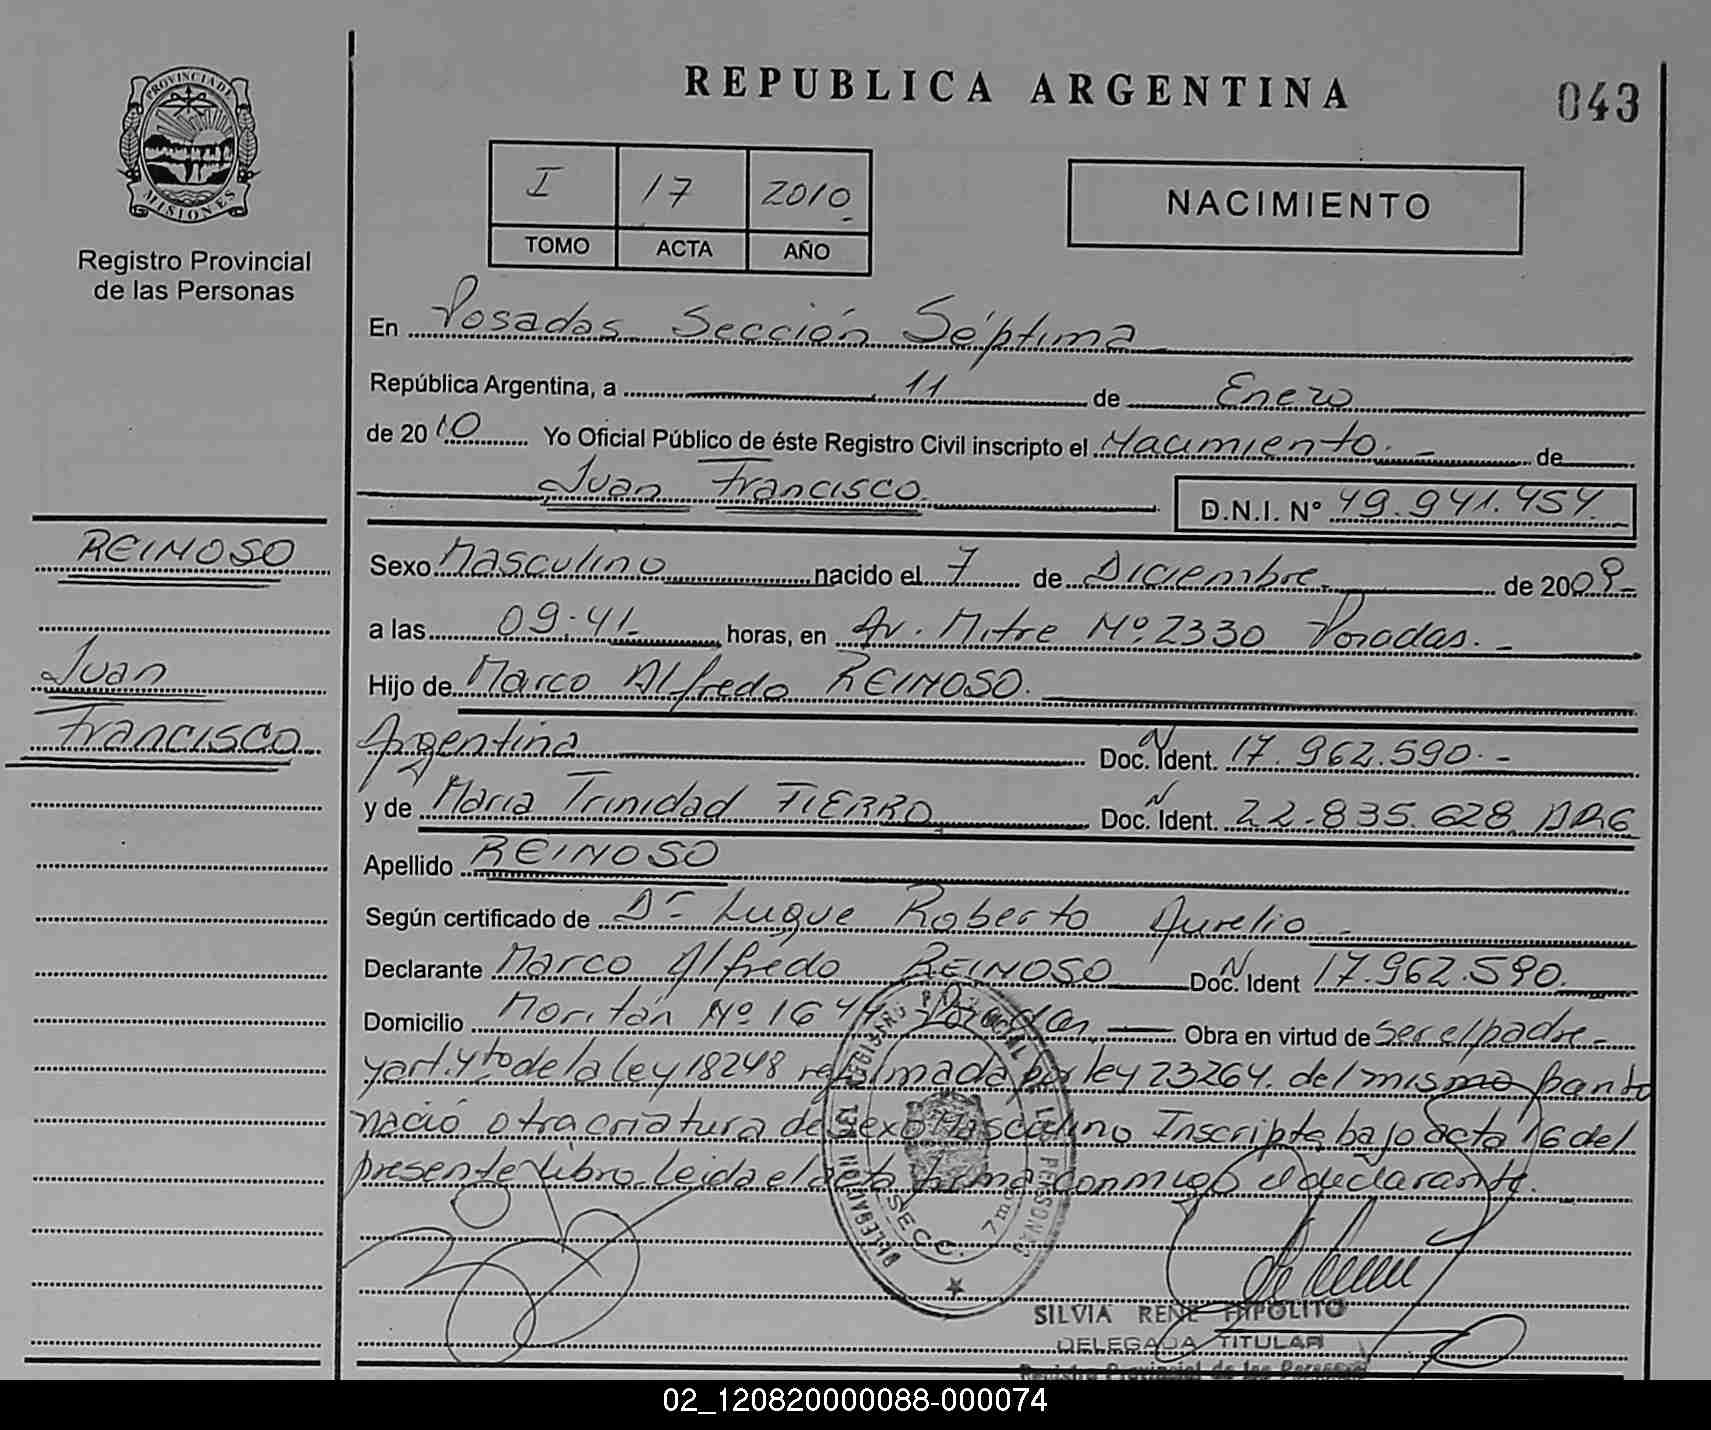 REPUBLICA ARGENTINA
043
PROVINCIA DE
MISIONES
Registro Provincial
de las Personas
I 17 2010
TOMO ACTA AÑO
NACIMIENTO
En Posadas Sección Séptima
República Argentina, a 11 de Enero
de 2010 Yo Oficial Público de éste Registro Civil inscripto el Nacimiento.- de
Juan Francisco D.N.I. N° 49.941.454.
REINOSO
Juan
Francisco
Sexo Masculino nacido el 7 de Diciembre.- de 2009.-
a las 09.41.- horas, en Av. Mitre Nº 2330 Posadas.-
Hijo de Marco Alfredo REINOSO.
Argentina Doc. N Ident. 17.962.590.-
y de María Trinidad FIERRO Doc. N Ident. 22.835.628 ARG
Apellido REINOSO
Según certificado de Dr Luque Roberto Aurelio.-
Declarante Marco Alfredo REINOSO Doc. N Ident 17.962.590.
Domicilio Moritán Nº 1644 Posadas, Obra en virtud de ser el padre-
y art. 4to de la ley 18248 reformada por ley 23264. del mismo parto
nació otra criatura de sexo Masculino Inscripta bajo acta 16 del
presente libro. Leida el acta firma conmigo el declarante.-
REGISTRO PROVINCIAL DE LAS PERSONAS
DELEGACION
SECC. 7ma
SILVIA RENE HIPOLITO
DELEGADA TITULAR
Registro Provincial de las Personas
02_120820000088-000074